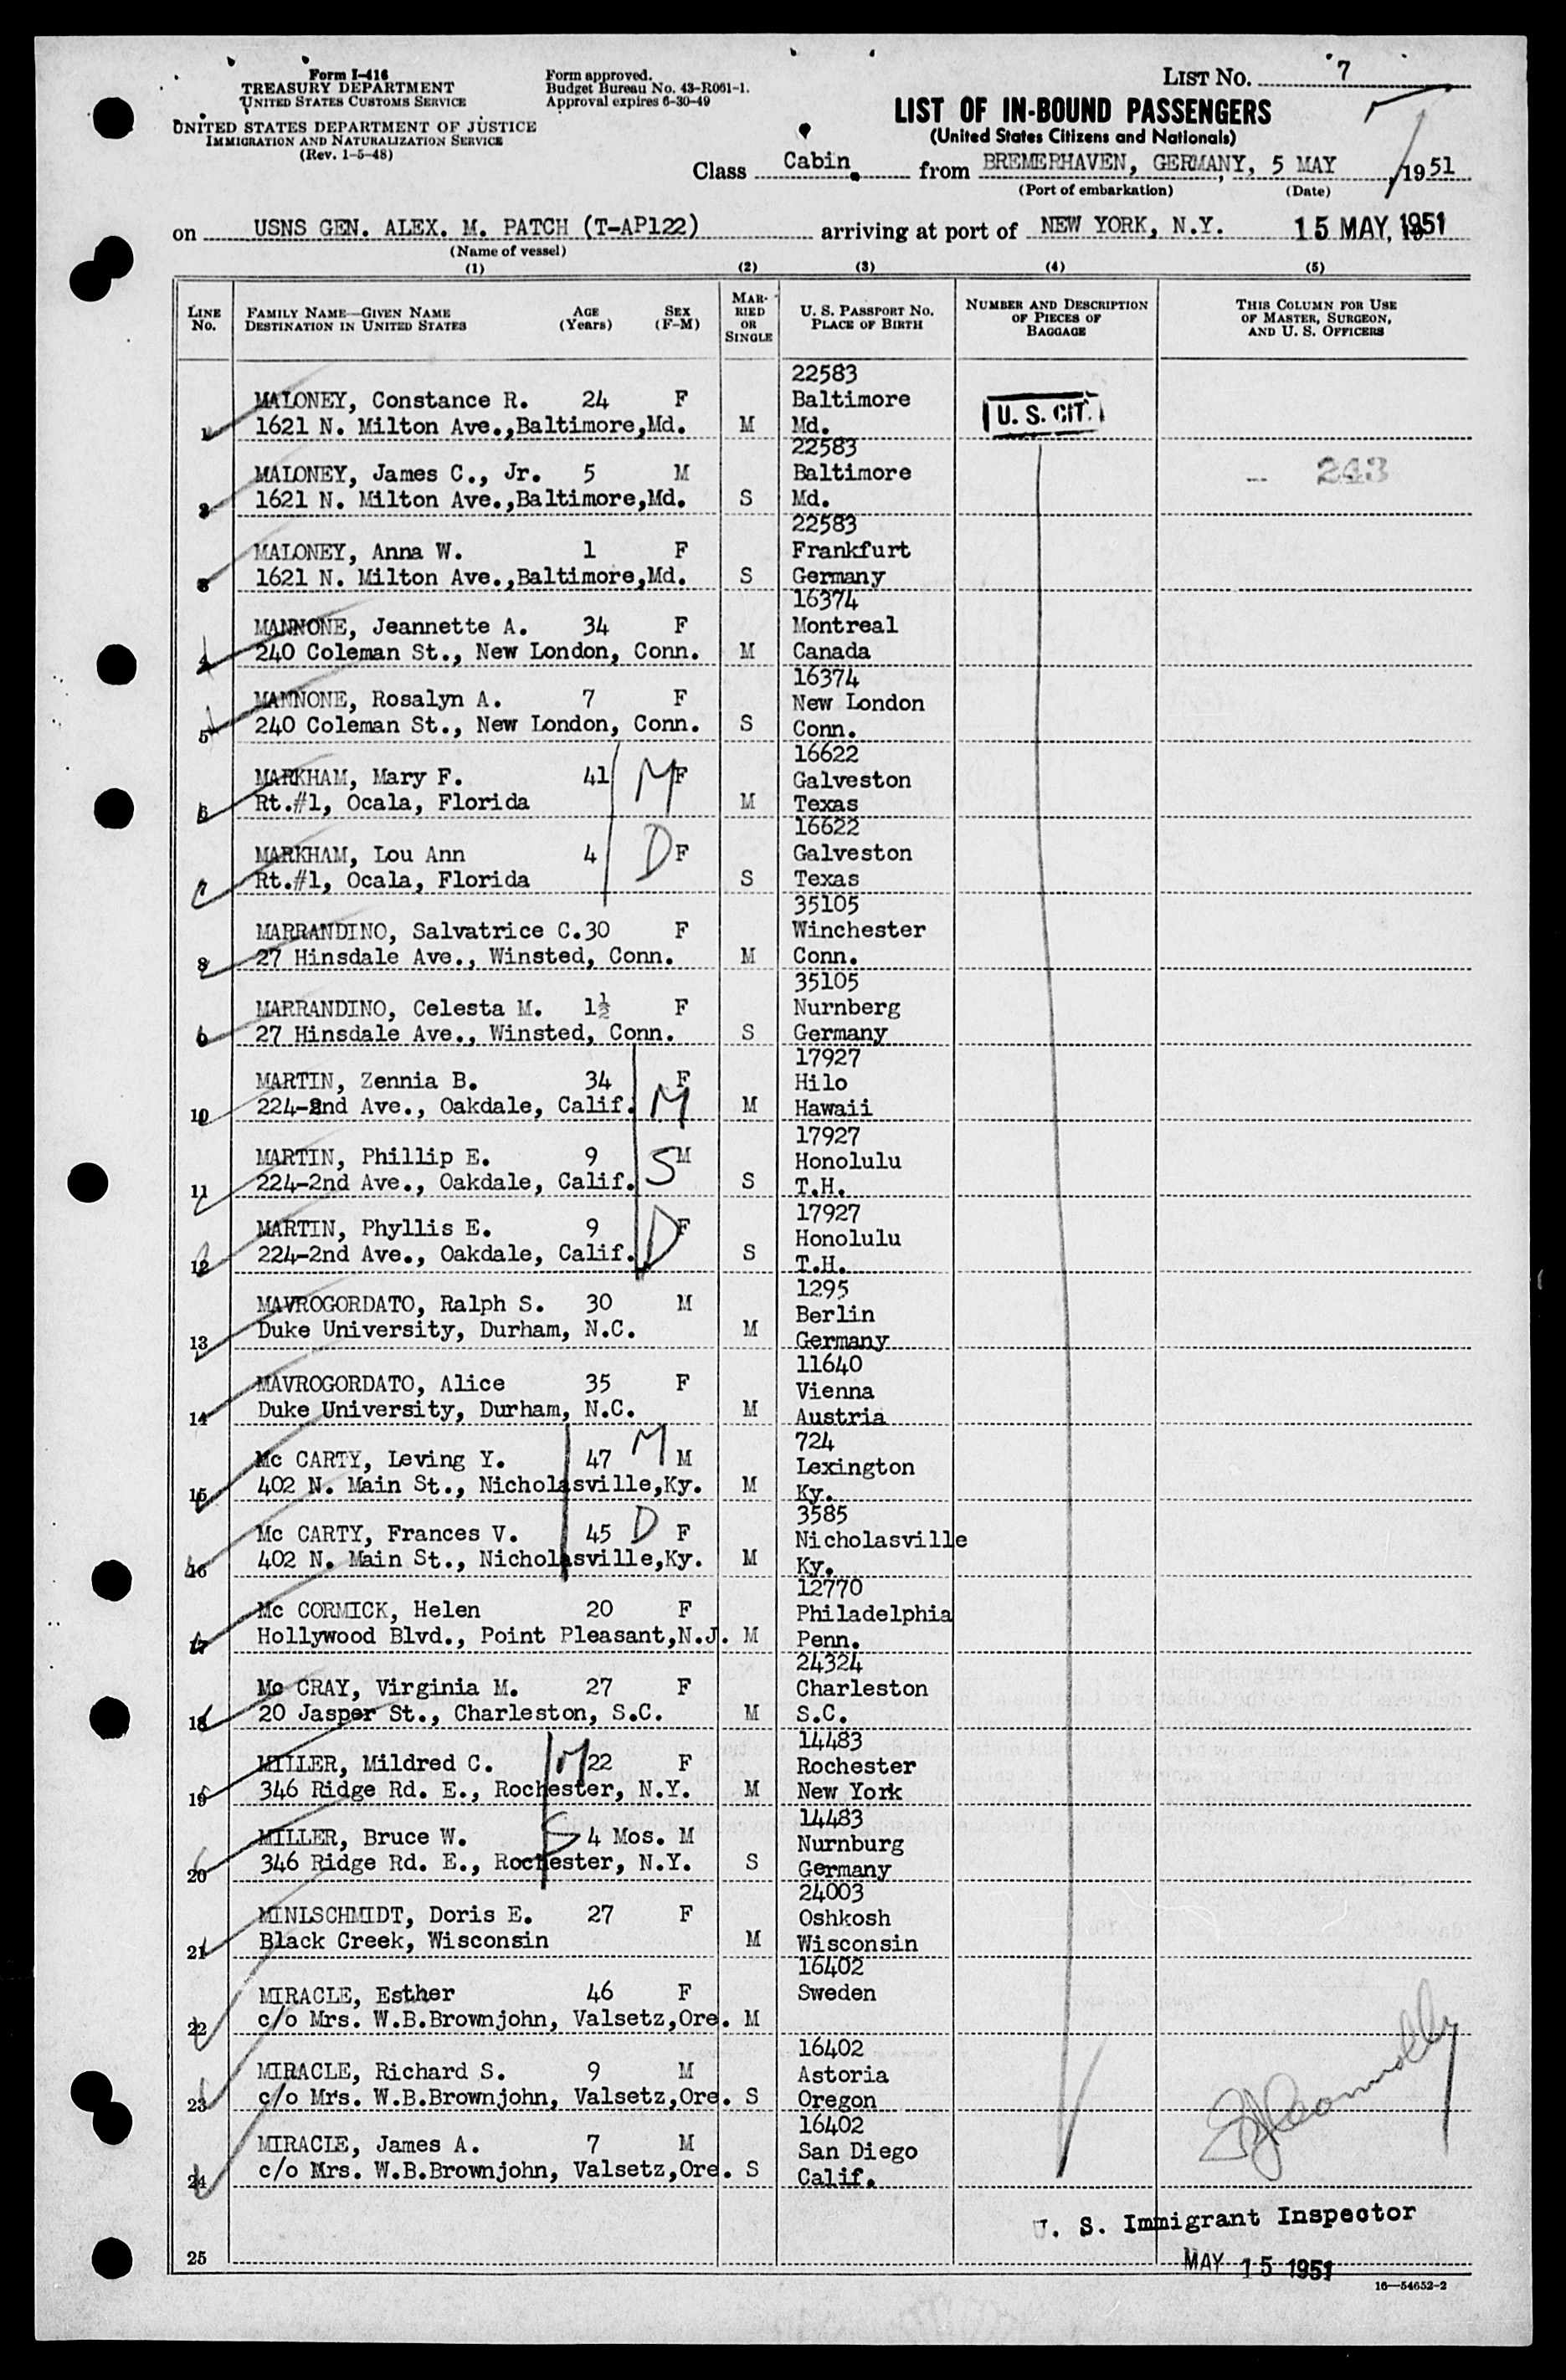 Form I-416
TREASURY DEPARTMENT
UNITED STATES CUSTOMS SERVICE
UNITED STATES DEPARTMENT OF JUSTICE
IMMIGRATION AND NATURALIZATION SERVICE
(Rev. 1-5-48)
Form approved.
Budget Bureau No. 43-R061-1.
Approval expires 6-30-49
LIST NO. 7
LIST OF IN-BOUND PASSENGERS
(United States Citizens and Nationals)
Class Cabin from BREMERHAVEN, GERMANY, 5 MAY, 1951
(Port of embarkation) (Date)
on USNS GEN. ALEX. M. PATCH (T-AP122) arriving at port of NEW YORK, N.Y. 15 MAY, 1951
(Name of vessel)
(1) (2) (3) (4) (5)
LINE NO.
FAMILY NAME—GIVEN NAME
DESTINATION IN UNITED STATES
AGE (Years)
SEX (F-M)
MARRIED OR SINGLE
U. S. PASSPORT NO.
PLACE OF BIRTH
NUMBER AND DESCRIPTION OF PIECES OF BAGGAGE
THIS COLUMN FOR USE OF MASTER, SURGEON, AND U. S. OFFICERS
22583
MALONEY, Constance R. 24 F Baltimore
1 1621 N. Milton Ave.,Baltimore,Md. M Md.
U. S. CIT.
22583
MALONEY, James C., Jr. 5 M Baltimore
2 1621 N. Milton Ave.,Baltimore,Md. S Md.
243
22583
MALONEY, Anna W. 1 F Frankfurt
3 1621 N. Milton Ave.,Baltimore,Md. S Germany
16374
MANNONE, Jeannette A. 34 F Montreal
4 240 Coleman St., New London, Conn. M Canada
16374
MANNONE, Rosalyn A. 7 F New London
5 240 Coleman St., New London, Conn. S Conn.
16622
MARKHAM, Mary F. 41 M F Galveston
6 Rt.#1, Ocala, Florida M Texas
16622
MARKHAM, Lou Ann 4 D F Galveston
7 Rt.#1, Ocala, Florida S Texas
35105
MARRANDINO, Salvatrice C. 30 F Winchester
8 27 Hinsdale Ave., Winsted, Conn. M Conn.
35105
MARRANDINO, Celesta M. 1½ F Nurnberg
9 27 Hinsdale Ave., Winsted, Conn. S Germany
17927
MARTIN, Zennia B. 34 F Hilo
10 224-2nd Ave., Oakdale, Calif. M M Hawaii
17927
MARTIN, Phillip E. 9 S M Honolulu
11 224-2nd Ave., Oakdale, Calif. S T.H.
17927
MARTIN, Phyllis E. 9 D F Honolulu
12 224-2nd Ave., Oakdale, Calif. S T.H.
1295
MAVROGORDATO, Ralph S. 30 M Berlin
13 Duke University, Durham, N.C. M Germany
11640
MAVROGORDATO, Alice 35 F Vienna
14 Duke University, Durham, N.C. M Austria
724
Mc CARTY, Leving Y. 47 M M Lexington
15 402 N. Main St., Nicholasville,Ky. M Ky.
3585
Mc CARTY, Frances V. 45 D F Nicholasville
16 402 N. Main St., Nicholasville,Ky. M Ky.
12770
Mc CORMICK, Helen 20 F Philadelphia
17 Hollywood Blvd., Point Pleasant,N.J. M Penn.
24324
Mc CRAY, Virginia M. 27 F Charleston
18 20 Jasper St., Charleston, S.C. M S.C.
14483
MILLER, Mildred C. M 22 F Rochester
19 346 Ridge Rd. E., Rochester, N.Y. M New York
14483
MILLER, Bruce W. S 4 Mos. M Nurnburg
20 346 Ridge Rd. E., Rochester, N.Y. S Germany
24003
MINLSCHMIDT, Doris E. 27 F Oshkosh
21 Black Creek, Wisconsin M Wisconsin
16402
MIRACLE, Esther 46 F Sweden
22 c/o Mrs. W.B.Brownjohn, Valsetz,Ore. M
16402
MIRACLE, Richard S. 9 M Astoria
23 c/o Mrs. W.B.Brownjohn, Valsetz,Ore. S Oregon
16402
MIRACLE, James A. 7 M San Diego
24 c/o Mrs. W.B.Brownjohn, Valsetz,Ore. S Calif.
U. S. Immigrant Inspector
25
MAY 15 1951
16—54652-2